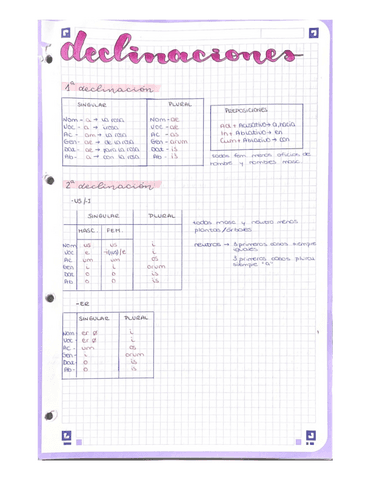 declinaciones
1ª declinación
SINGULAR PLURAL
Nom - a → la rosa Nom - ae
Voc - a → rosa Voc - ae
Ac - am → la rosa Ac - as
Gen - ae → de la rosa Gen - arum
Dat - ae → para la rosa Dat - is
Ab - a → con la rosa Ab - is
PREPOSICIONES
Ad + Acusativo → a, hacia
In + Ablativo → en
Cum + Ablativo → con
todos fem. menos oficios de
hombre y nombres masc.
2ª declinación
-US/-I
SINGULAR PLURAL
MASC. FEM.
Nom us us i
Voc e i
Ac um um os
Gen i i orum
Dat o o is
Ab o o is
todos masc y neutro menos
plantas/árboles
neutros → 3 primeros casos siempre
iguales
3 primeros casos plural
siempre "a"
-ER
SINGULAR PLURAL
Nom - er Ø i
Voc - er Ø i
Ac - um os
Gen - i orum
Dat - o is
Ab - o is